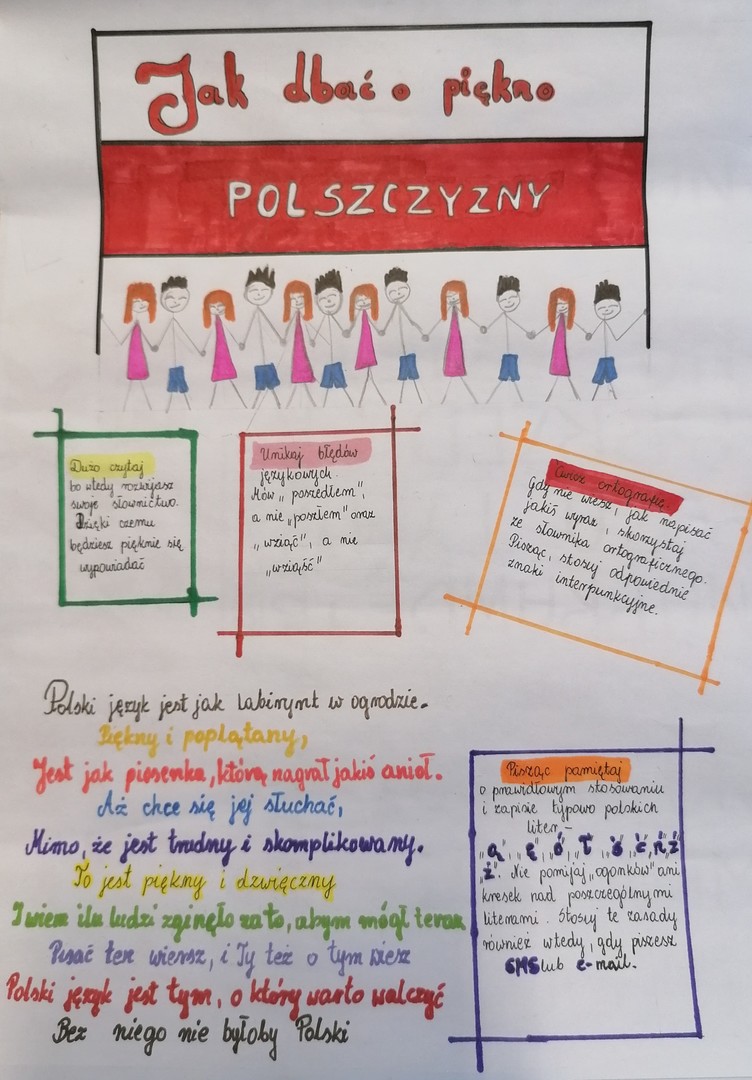 Jak dbać o piękno
POLSZCZYZNY
Dużo czytaj
bo wtedy rozwijasz
swoje słownictwo.
Dzięki czemu
będziesz pięknie się
wypowiadać
Unikaj błędów
językowych.
Mów „poszedłem",
a nie „poszłem" oraz
„wziąć", a nie
„wziąść"
Ćwicz ortografię.
Gdy nie wiesz, jak napisać
jakiś wyraz, skorzystaj
ze słownika ortograficznego.
Pisząc, stosuj odpowiednie
znaki interpunkcyjne.
Polski język jest jak labirynt w ogrodzie.
Piękny i poplątany,
Jest jak piosenka, którą nagrał jakiś anioł.
Aż chce się jej słuchać,
Mimo, że jest trudny i skomplikowany.
To jest piękny i dzwięczny
I wiem ilu ludzi zginęło za to, abym mógł teraz
Pisać ten wiersz, i Ty też o tym wiesz
Polski język jest tym, o który warto walczyć
Bez niego nie byłoby Polski
Pisząc pamiętaj
o prawidłowym stosowaniu
i zapisie typowo polskich
liter –
„ą", „ę", „ó", „ł", „ś", „ć", „ń", „ź"
„ż". Nie pomijaj „ogonków" ani
kresek nad poszczególnymi
literami. Stosuj te zasady
również wtedy, gdy piszesz
SMS lub e-mail.